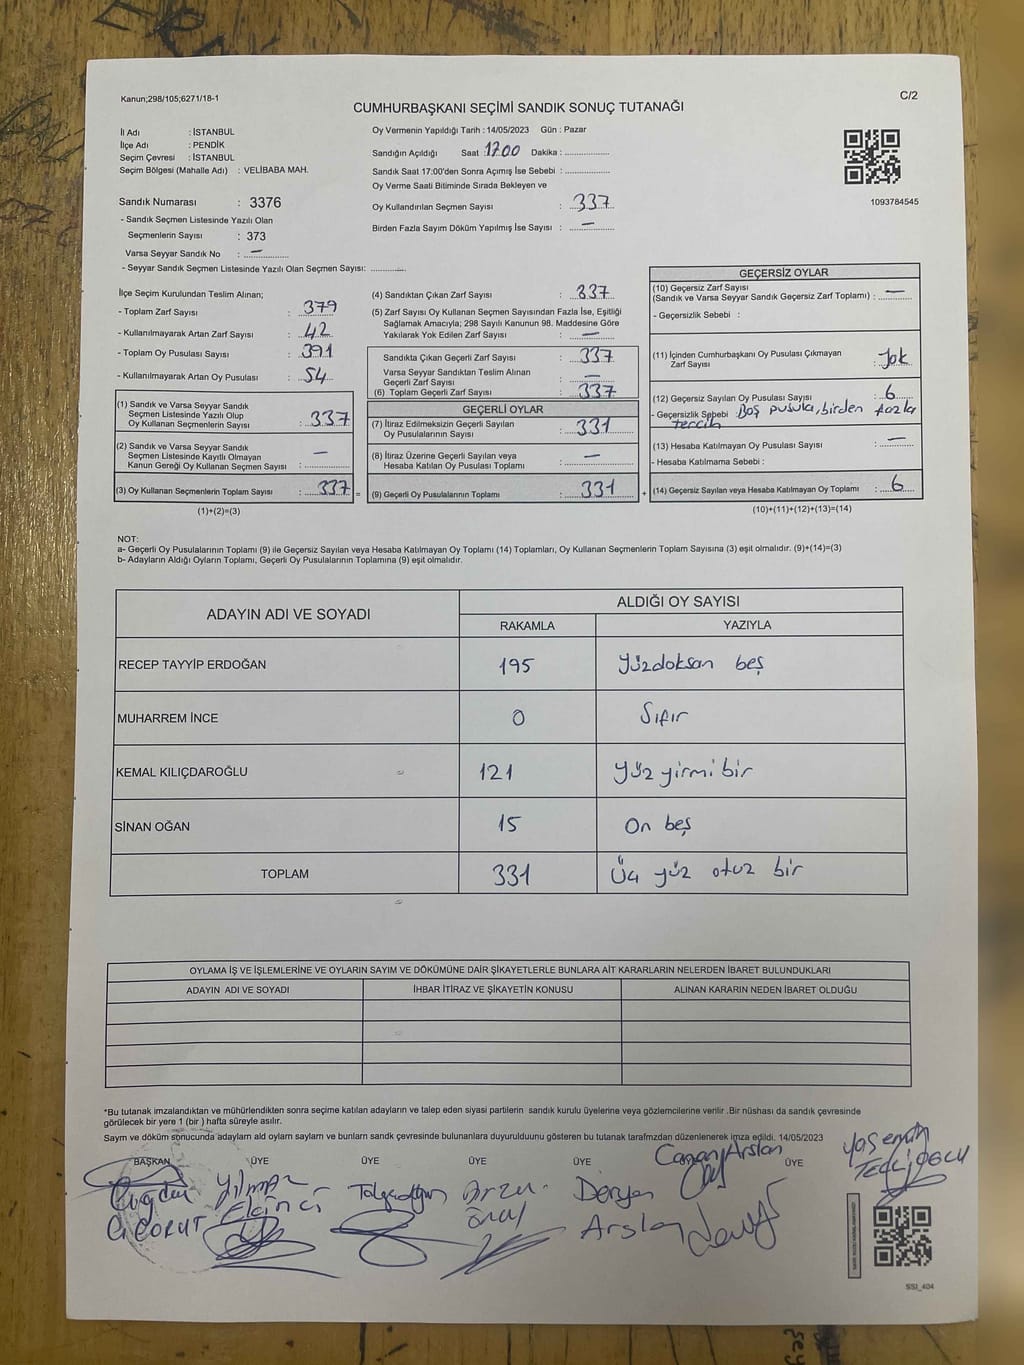 Kanun;298/105;6271/18-1
C/2
CUMHURBAŞKANI SEÇİMİ SANDIK SONUÇ TUTANAĞI
İl Adı : İSTANBUL
İlçe Adı : PENDİK
Seçim Çevresi : İSTANBUL
Seçim Bölgesi (Mahalle Adı) : VELİBABA MAH.
Sandık Numarası : 3376
- Sandık Seçmen Listesinde Yazılı Olan
Seçmenlerin Sayısı : 373
Varsa Seyyar Sandık No : —
- Seyyar Sandık Seçmen Listesinde Yazılı Olan Seçmen Sayısı: ............
Oy Vermenin Yapıldığı Tarih : 14/05/2023 Gün : Pazar
Sandığın Açıldığı Saat : 17.00 Dakika : ...............
Sandık Saat 17:00'den Sonra Açımış İse Sebebi : ...............
Oy Verme Saati Bitiminde Sırada Bekleyen ve
Oy Kullandırılan Seçmen Sayısı : 337
Birden Fazla Sayım Döküm Yapılmış İse Sayısı : —
1093784545
İlçe Seçim Kurulundan Teslim Alınan;
- Toplam Zarf Sayısı : 379
- Kullanılmayarak Artan Zarf Sayısı : 42
- Toplam Oy Pusulası Sayısı : 391
- Kullanılmayarak Artan Oy Pusulası : 54
(1) Sandık ve Varsa Seyyar Sandık
Seçmen Listesinde Yazılı Olup
Oy Kullanan Seçmenlerin Sayısı : 337
(2) Sandık ve Varsa Seyyar Sandık
Seçmen Listesinde Kayıtlı Olmayan
Kanun Gereği Oy Kullanan Seçmen Sayısı : —
(3) Oy Kullanan Seçmenlerin Toplam Sayısı : 337 =
(1)+(2)=(3)
(4) Sandıktan Çıkan Zarf Sayısı : 337
(5) Zarf Sayısı Oy Kullanan Seçmen Sayısından Fazla İse, Eşitliği
Sağlamak Amacıyla; 298 Sayılı Kanunun 98. Maddesine Göre
Yakılarak Yok Edilen Zarf Sayısı : —
Sandıkta Çıkan Geçerli Zarf Sayısı : 337
Varsa Seyyar Sandıktan Teslim Alınan
Geçerli Zarf Sayısı : —
(6) Toplam Geçerli Zarf Sayısı : 337
GEÇERLİ OYLAR
(7) İtiraz Edilmeksizin Geçerli Sayılan
Oy Pusulalarının Sayısı : 331
(8) İtiraz Üzerine Geçerli Sayılan veya
Hesaba Katılan Oy Pusulası Toplamı : —
(9) Geçerli Oy Pusulalarının Toplamı : 331 +
GEÇERSİZ OYLAR
(10) Geçersiz Zarf Sayısı
(Sandık ve Varsa Seyyar Sandık Geçersiz Zarf Toplamı) : —
- Geçersizlik Sebebi :
(11) İçinden Cumhurbaşkanı Oy Pusulası Çıkmayan
Zarf Sayısı : Yok
(12) Geçersiz Sayılan Oy Pusulası Sayısı : 6
- Geçersizlik Sebebi : Boş pusula, birden fazla
tercih
(13) Hesaba Katılmayan Oy Pusulası Sayısı : —
- Hesaba Katılmama Sebebi :
(14) Geçersiz Sayılan veya Hesaba Katılmayan Oy Toplamı : 6
(10)+(11)+(12)+(13)=(14)
NOT:
a- Geçerli Oy Pusulalarının Toplamı (9) ile Geçersiz Sayılan veya Hesaba Katılmayan Oy Toplamı (14) Toplamları, Oy Kullanan Seçmenlerin Toplam Sayısına (3) eşit olmalıdır. (9)+(14)=(3)
b- Adayların Aldığı Oyların Toplamı, Geçerli Oy Pusulalarının Toplamına (9) eşit olmalıdır.
ADAYIN ADI VE SOYADI
ALDIĞI OY SAYISI
RAKAMLA YAZIYLA
RECEP TAYYİP ERDOĞAN 195 Yüzdoksan beş
MUHARREM İNCE 0 Sıfır
KEMAL KILIÇDAROĞLU 121 Yüz yirmi bir
SİNAN OĞAN 15 On beş
TOPLAM 331 Üç yüz otuz bir
OYLAMA İŞ VE İŞLEMLERİNE VE OYLARIN SAYIM VE DÖKÜMÜNE DAİR ŞİKAYETLERLE BUNLARA AİT KARARLARIN NELERDEN İBARET BULUNDUKLARI
ADAYIN ADI VE SOYADI İHBAR İTİRAZ VE ŞİKAYETİN KONUSU ALINAN KARARIN NEDEN İBARET OLDUĞU
*Bu tutanak imzalandıktan ve mühürlendikten sonra seçime katılan adayların ve talep eden siyasi partilerin sandık kurulu üyelerine veya gözlemcilerine verilir .Bir nüshası da sandık çevresinde
görülecek bir yere 1 (bir ) hafta süreyle asılır.
Sayım ve döküm sonucunda adayların ald oyların sayların ve bunların sandk çevresinde bulunanlara duyurulduunu gösteren bu tutanak tarafmzdan düzenlenerek imza edildi. 14/05/2023
BAŞKAN ÜYE ÜYE ÜYE ÜYE ÜYE
Canan Arslan
Yılmaz
Ekinci
Arzu
Önal
Derya
Arslan
SSI_404